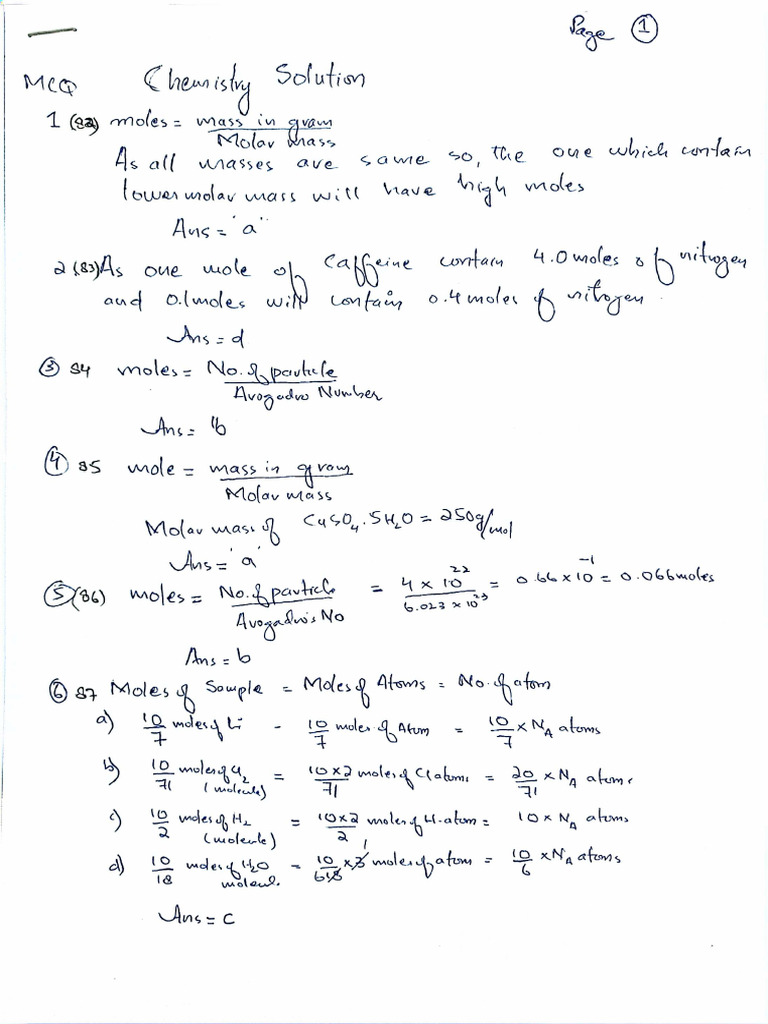 Page ①
MCQ Chemistry Solution
1 (82) moles = mass in gram / Molar mass
As all masses are same so, the one which contain
lower molar mass will have high moles
Ans = 'a'
2 (83) As one mole of caffeine contain 4.0 moles of nitrogen
and 0.1 moles will contain 0.4 moles of nitrogen.
Ans = d
③ 84 moles = No. of particle / Avogadro Number
Ans = "b
④ 85 mole = mass in gram / Molar mass
Molar mass of CuSO₄.5H₂O = 250g/mol
Ans = 'a'
⑤ (86) moles = No. of particle / Avogadro's No = 4 × 10²² / 6.023 × 10²³ = 0.66 × 10⁻¹ = 0.066 moles
Ans = b
⑥ 87 Moles of Sample = Moles of Atoms = No. of atom
a) 10/7 moles of Li - 10/7 moles of Atom = 10/7 × N_A atoms
b) 10/71 moles of Cl₂ (molecule) = 10×2/71 moles of Cl atoms = 20/71 × N_A atoms
c) 10/2 moles of H₂ (molecule) = 10×2/2 moles of H-atom = 10 × N_A atoms
d) 10/18 moles of H₂O molecul. = 10/6 18 × 3 1 moles of atom = 10/6 × N_A atoms
Ans = c